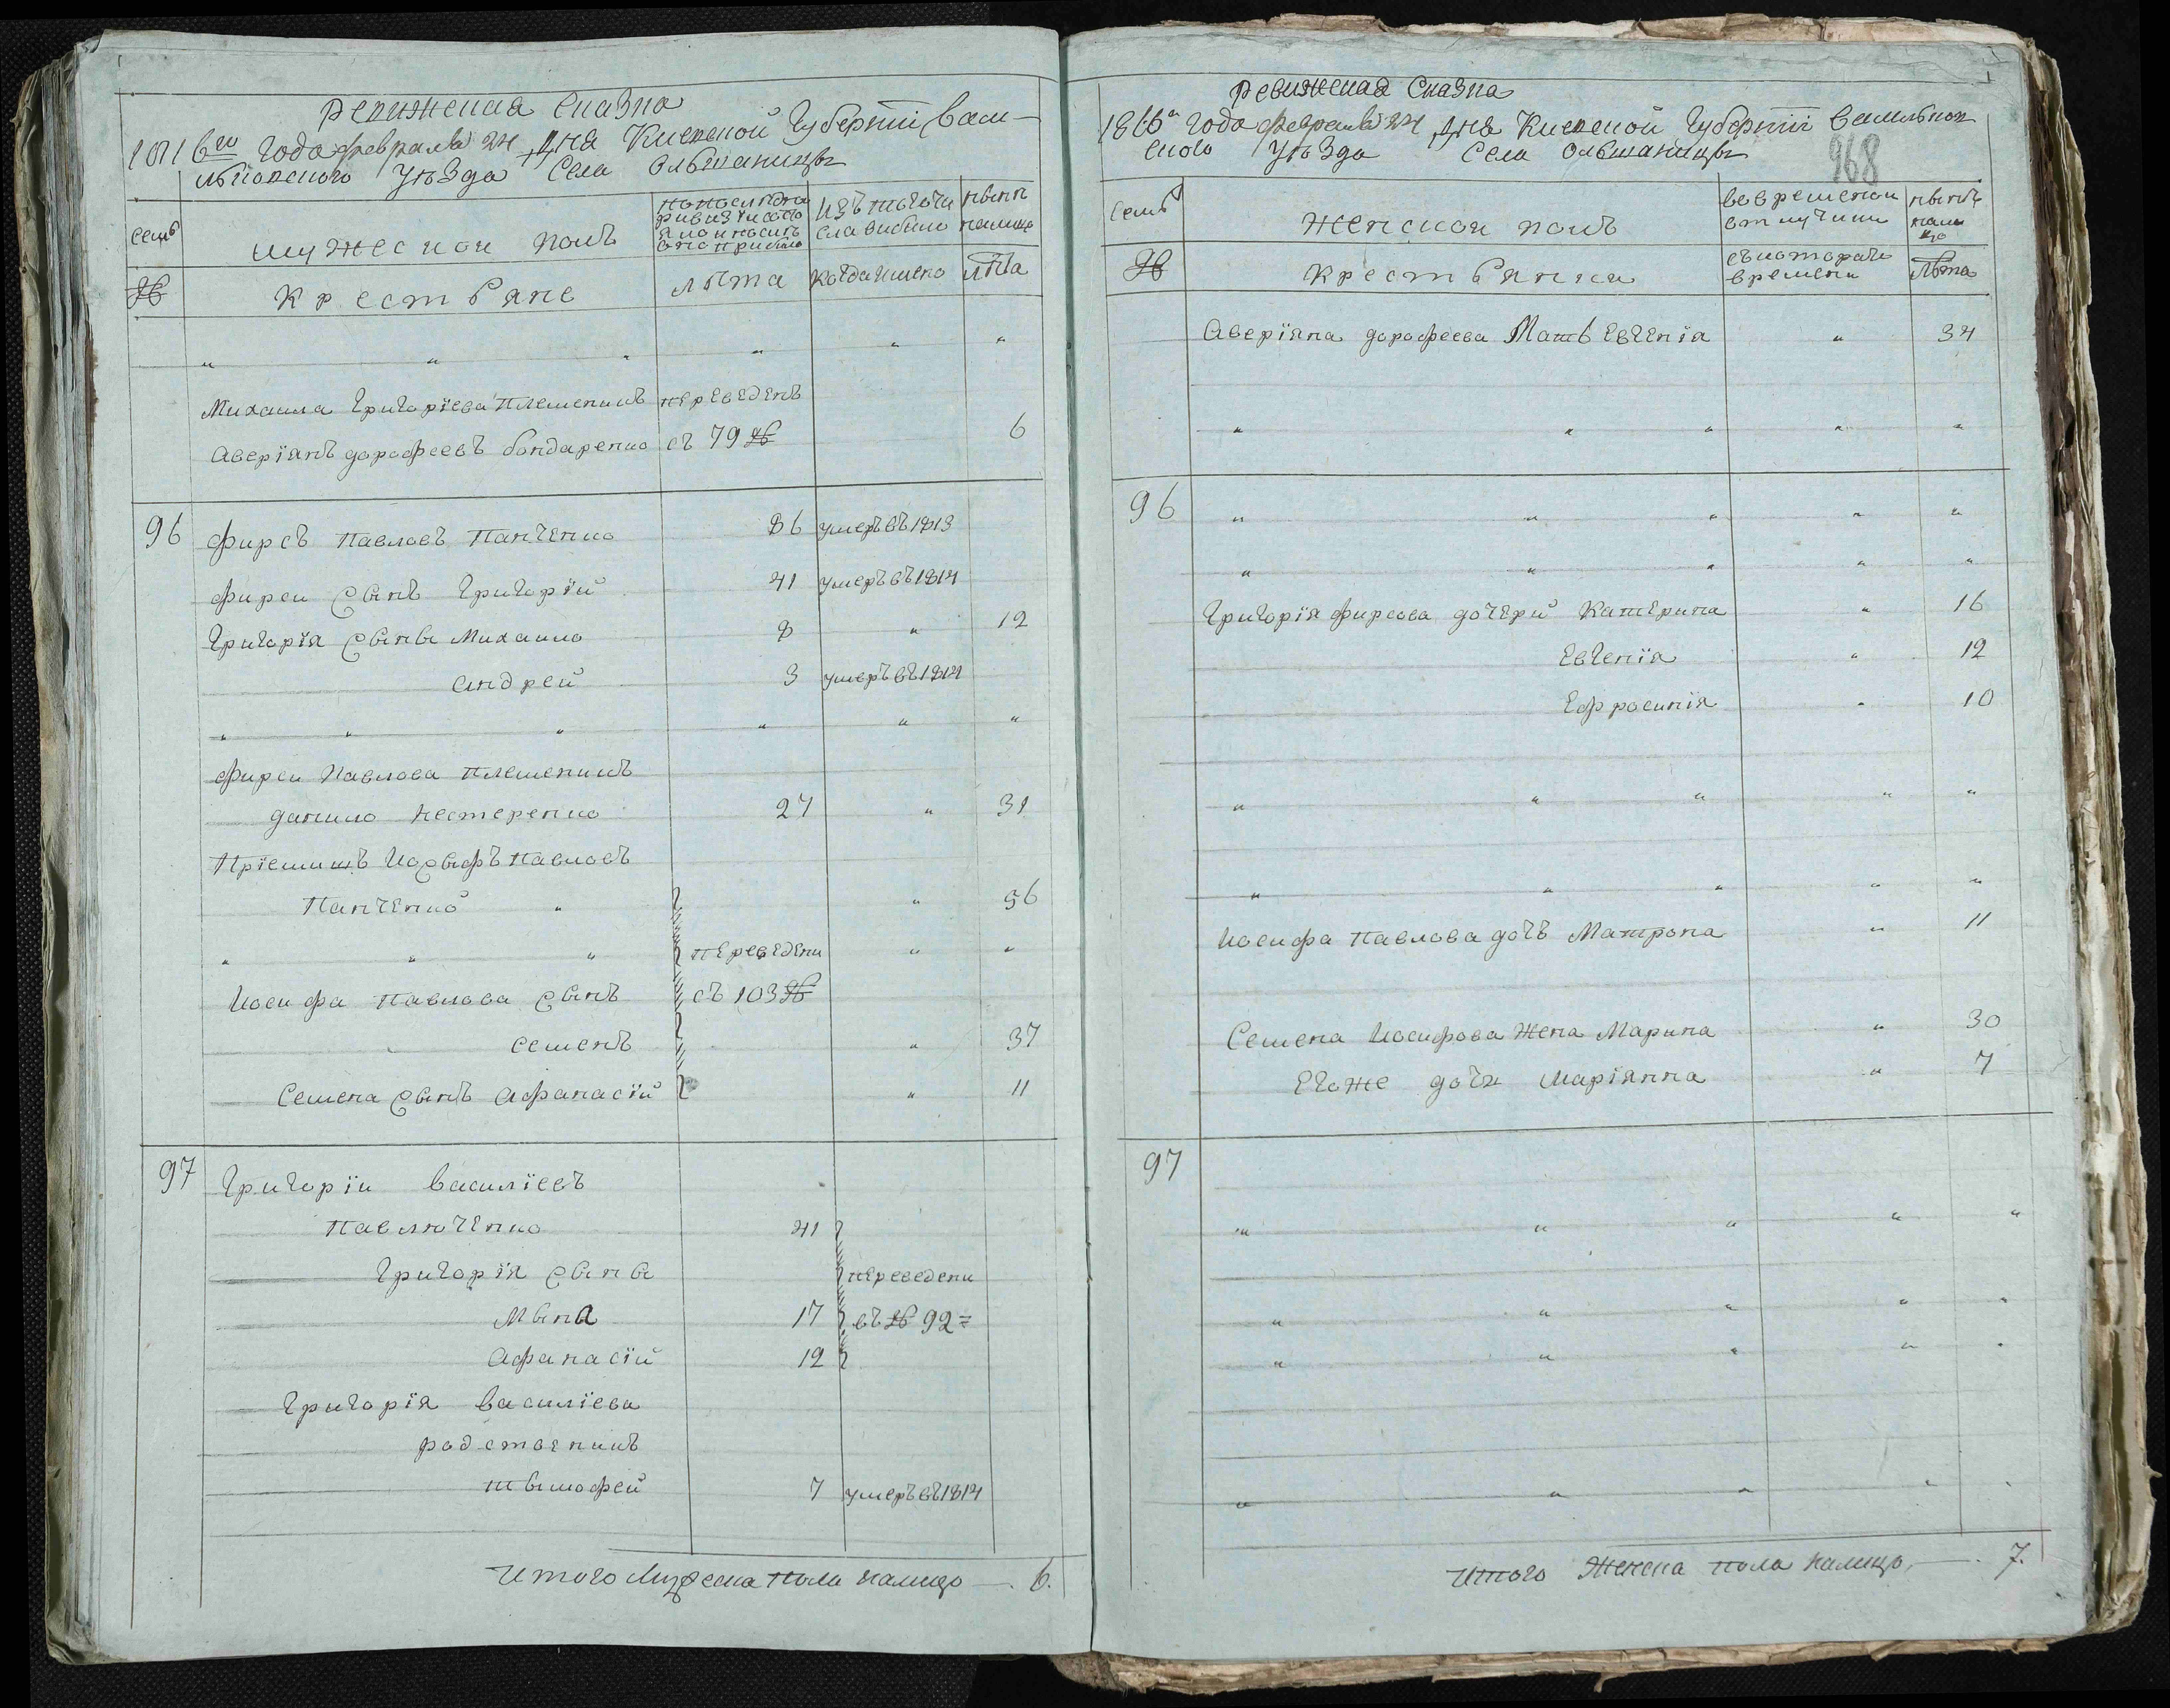 Ревижская Сказка
1816го года февраля 24 дня Киевской Губернїи васи-
льковского уѣзда Села Ольшаницы
семья
мужеской полъ
Изъ того числа выбило
нынѣ налицо
№
Крестьяне
лѣта
когда имено
лѣта
" " " " " "
Михаила Григорїева племеникъ переведенъ
Аверїянъ дорофеевъ бондаренко съ 79 № 6
96 фирсъ Павловъ Панченко 36 умеръ въ 1813
фирси сынъ Григорїй 41 умеръ въ 1814
Григорїя сыны Михаило 8 " 12
андрей 3 умеръ въ 1814
" " " " " "
фирси Павлова племеникъ
данило нестеренко 27 " 31
Прїемишъ Иосыфъ Павловъ
Панченко " " 56
" " " переведени " "
Иосифа павлова сынъ съ 103 №
семенъ " 37
Семена сынъ Афанасїй " 11
97 Григорїи василїевъ
Павлюченко 41
Григорїя сыны переведени
Мына 17 въ № 92=
Афанасїй 12
Григорїя василїева
родственикъ
тымофей 7 умеръ въ 1814
Итого Мужеска пола налицо —. 6.
Ревижская Сказка
1816го года февраля 24 дня Киевской Губернїи васильков
ского уѣзда Села Ольшаницы
968
семья
женской полъ
во временой отлучики
нынѣ налицо
№
Крестьянки
съ котораго времени
лѣта
Аверїяна дорофеева Мать Евгенїя " 34
" " " " "
96 " " " " "
" " " " "
Григорїя фирсова дочери Катерина " 16
Евгенїя " 12
Ефросинїя " 10
" " " " "
" " " " "
Иосифа павлова дочъ Матрона " 11
Семена Иосифова жена Марина " 30
Егоже дочи Марїянна " 7
97
" " " " "
" " " " "
" " " " "
" " " " "
Итого женска пола налицо, —. 7.